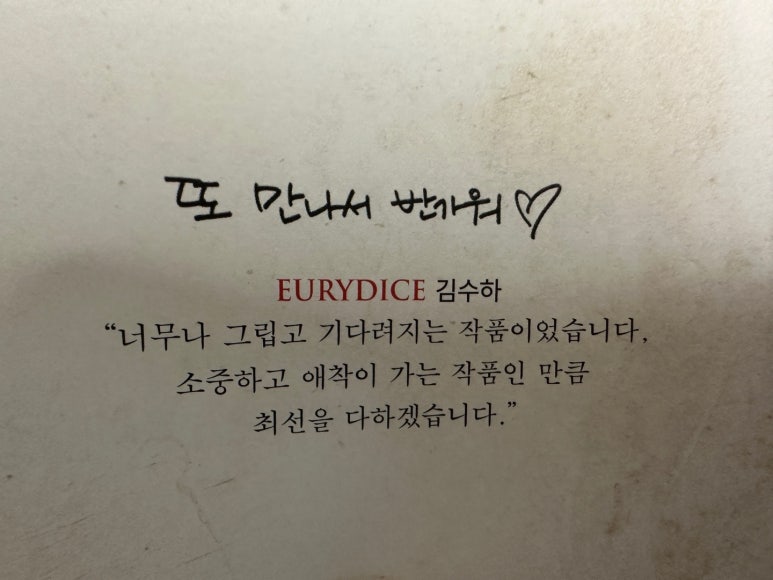 또 만나서 반가워♡
EURYDICE 김수하
“너무나 그립고 기다려지는 작품이었습니다,
소중하고 애착이 가는 작품인 만큼
최선을 다하겠습니다.”